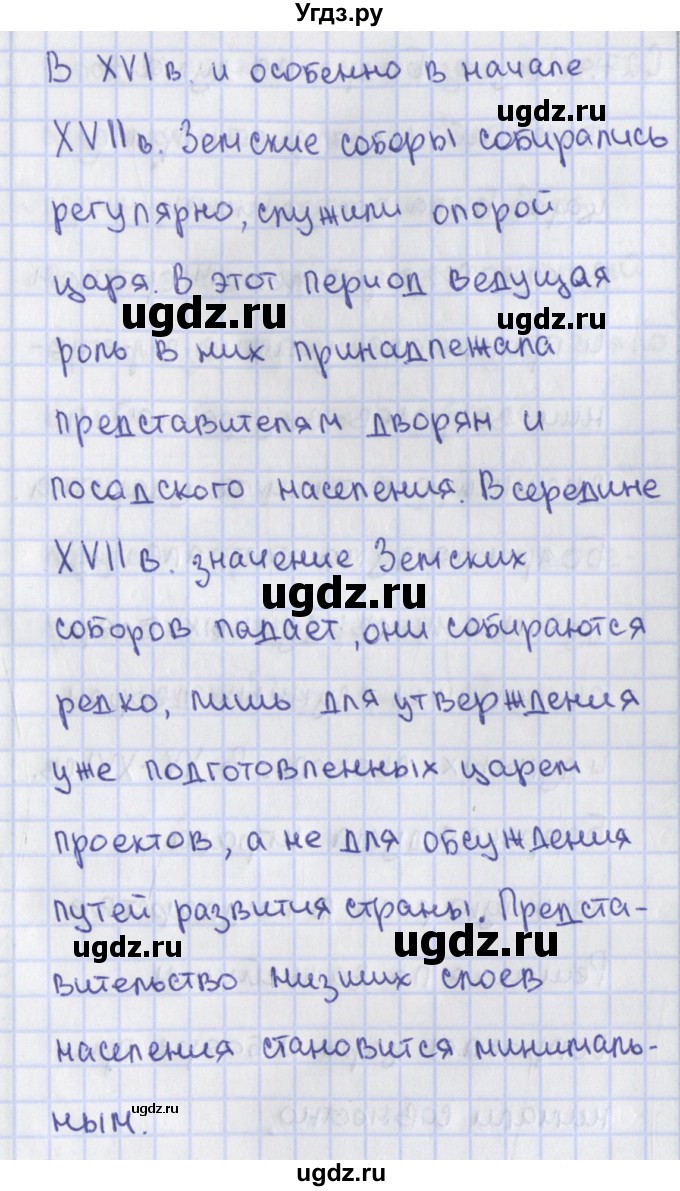 Угдз.ру
В XVI в. и особенно в начале
XVII в. Земские соборы собирались
регулярно, служили опорой
царя. В этот период ведущая
роль в них принадлежала
представителям дворян и
посадского населения. В середине
XVII в. значение Земских
соборов падает, они собираются
редко, лишь для утверждения
уже подготовленных царем
проектов, а не для обсуждения
путей развития страны. Предста-
вительство низших слоев
населения становится минималь-
ным.
ugdz.ru
ugdz.ru
ugdz.ru
ugdz.ru
ugdz.ru
ugdz.ru
ugdz.ru
ugdz.ru
ugdz.ru